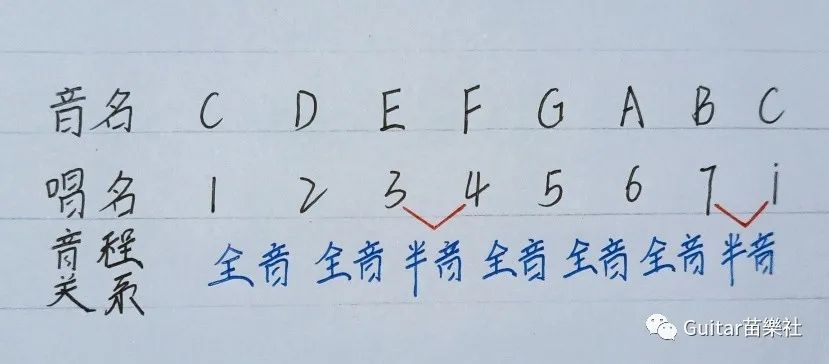 音名 C D E F G A B C
唱名 1 2 3 4 5 6 7 i
音程
关系
全音 全音 半音 全音 全音 全音 半音
Guitar苗樂社